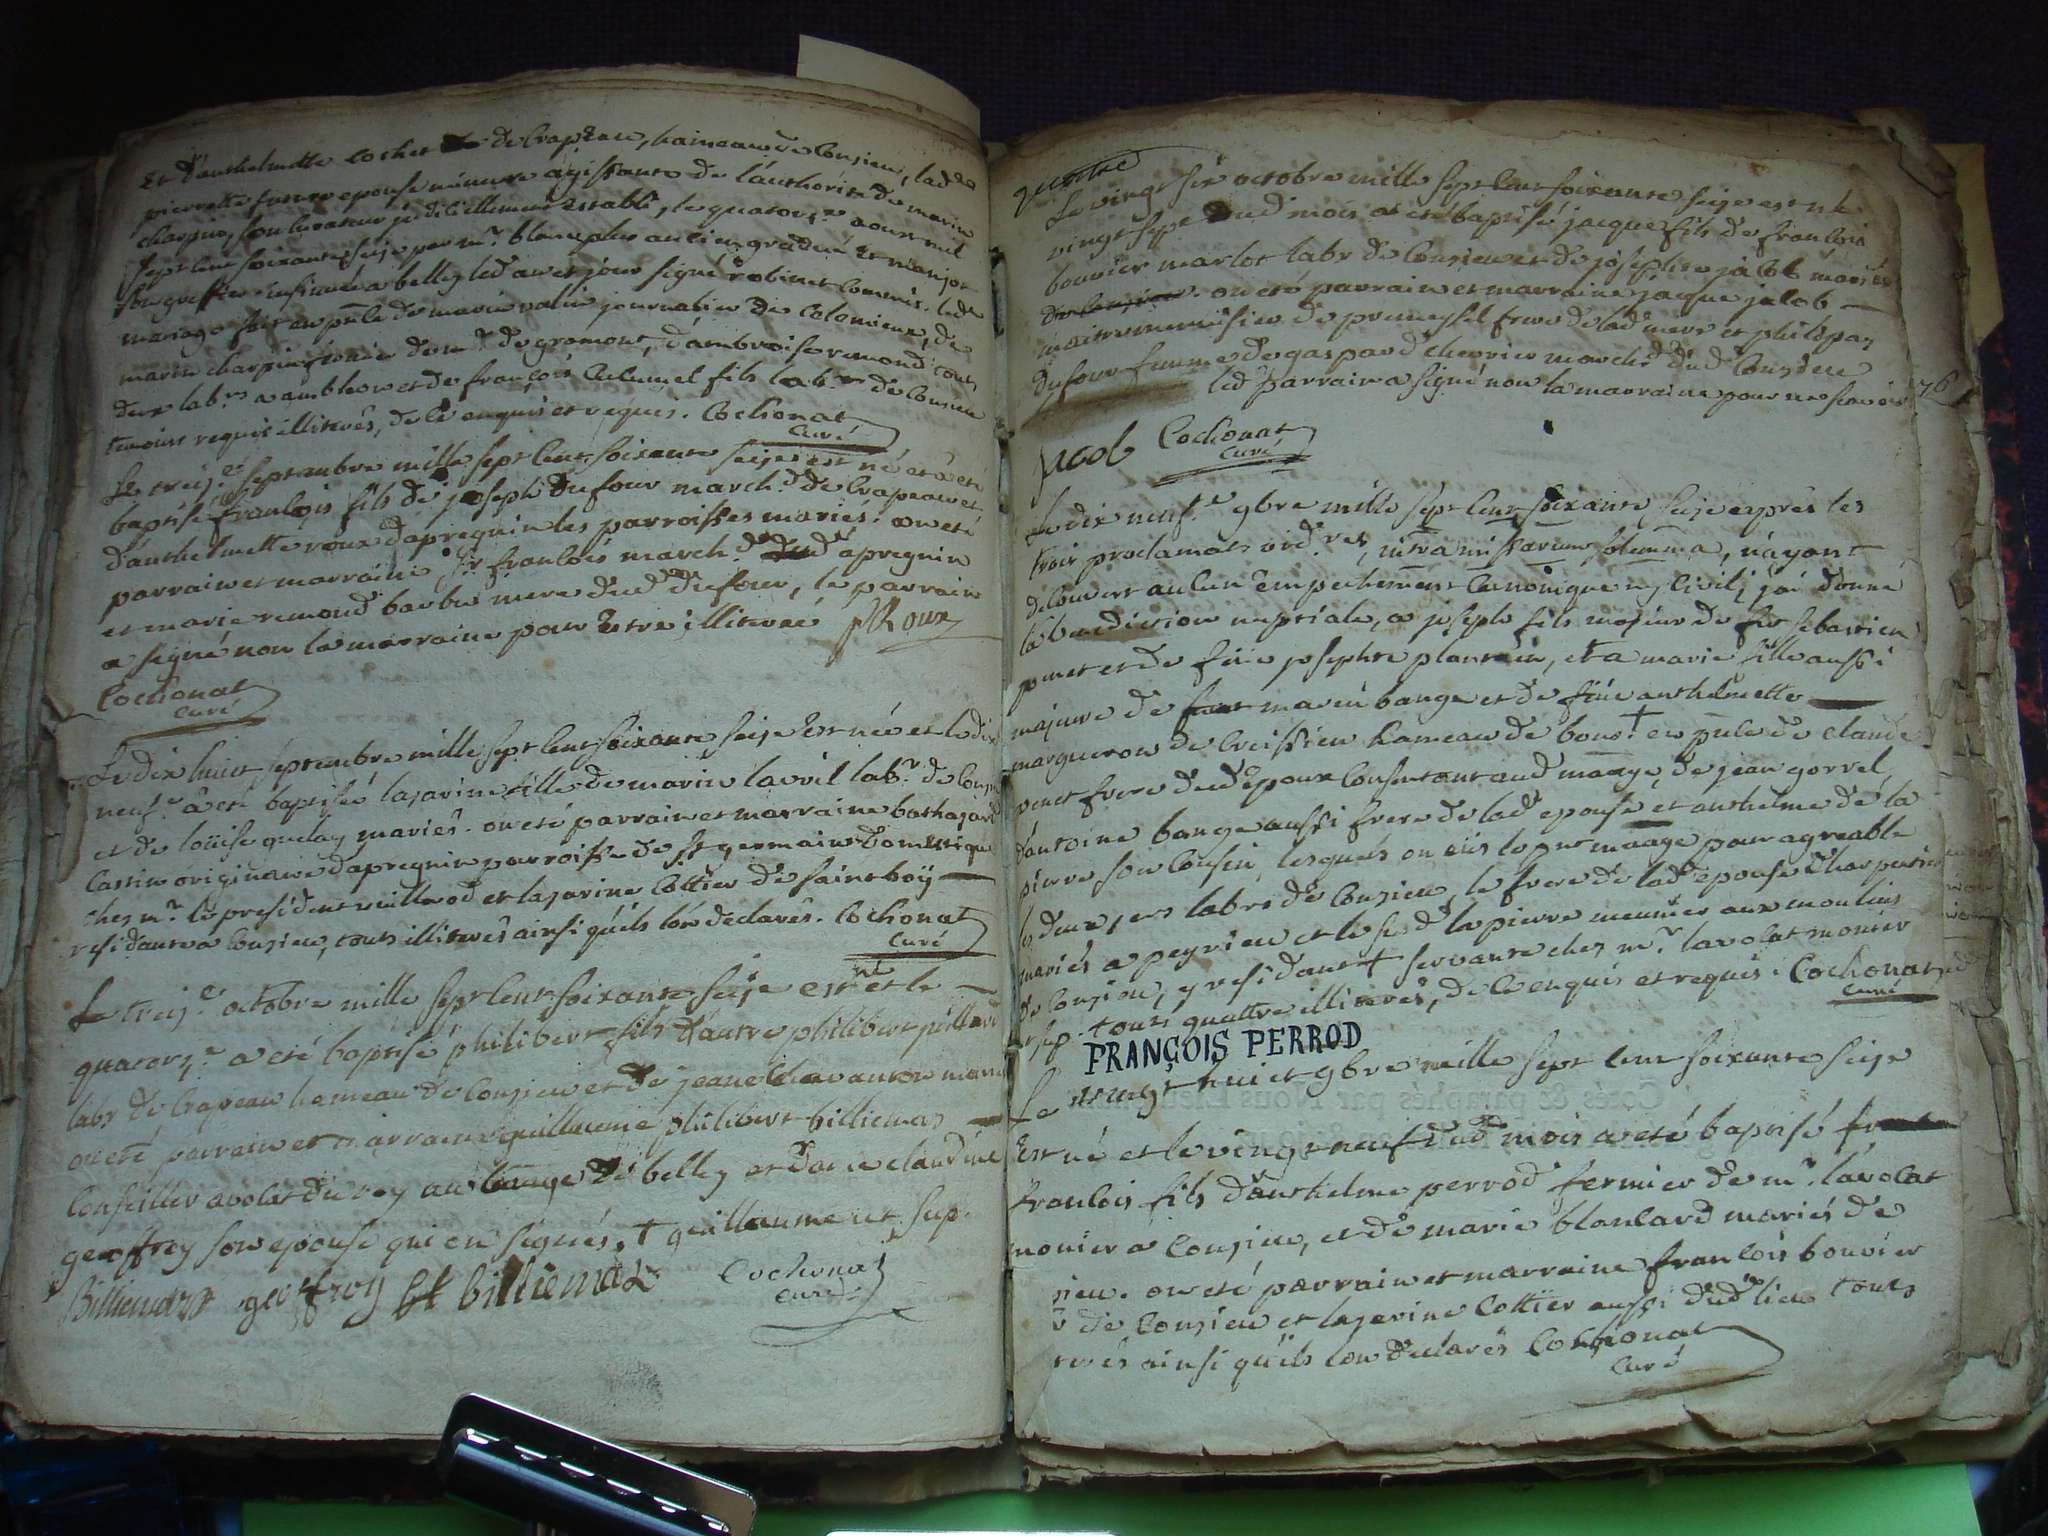 Et d'anthelmette cochet de Crapeau, hameau de Consieu, lad.
pierrette future epouse mineure agissante de l'authorité de marin
charpin, son curateur judiciellement establi, le quatorze aoust mil
sept cent soixante seize par mr. blanc plus ancien gradué et
son greffier insinué a belley led an et jour signé robinet commis. led
mariage fait en pnce de marin valin journalier de Colomieux, de
marin charpin de mr. de gramont, d'ambroise remond tous
deux labrs a ambleon et de françois fils labr. de Consieu
temoins requis illiterés, de ce enquis et requis. Cochonat
Curé
Le treize septembre mille sept cent soixante seize est né et a eté
baptisé françois fils de joseph Dufour march.d de Crapeau et
d'anthelmette roux d'apregnin les parroisses mariés. on eté
parrain et marraine sr françois march.d d'apregnin
et marie remond barbe mere dud Dufour, le parrain
a signé non la marraine pour Estre illiterée fRoux
Cochonat
Curé
Le dix huit septembre mille sept cent soixante seize Est née et le dix
neuf.e a eté baptisée lazarine fille de marin lavril labr. de Consieu
et de loüise quelay mariés. on eté parrain et marraine
Castin originaire d'apregnin parroisse de st germain domestique
ches mr. le president et lazarine Cottier de saint boÿ
residante a Consieu, tous illiterés ainsi quils l'on declarés. Cochonat
Curé
Le treiz.e octobre mille sept cent soixante seize est né et le
quatorz.e a eté baptisé philibert fils d'autre philibert
labr de Crapeau hameau de Consieu et de jeane Chavanton mariés
on eté parrain et marraine guillaume philibert billiemas
Conseiller avolat du roy au bailliage de belley et dame claudine
geoffroy son epouse qui on signés, + guillaume et sup.
Billiemaz geoffroy bt billiemaz Cochonat
Curé
Le vingt six octobre mille sept cent soixante seize est né
vingt sept dud mois a eté baptisé jacque fils de françois
bouvier marlot labr de Consieu et de josephte jacob mariés
de Consieu. on eté parrain et marraine jacque jacob
maitre menuisier de premeysel frere de lad mere et
Dufour femme de gaspard chevrier march.d dud Consieu
led parrain a signé non la marraine pour ne scavoir
76
jacob Cochonat
Curé
Le dix neuf.e 9bre mille sept cent soixante seize aprés les
trois proclamats ord.res, intra missarum solemnia, n'ayant
decouvert aucun empechement canonique ny civil, jai donné
la benediction nuptiale, a joseph fils majeur de fut sebastien
pinet et de füe josephte plantin, et a marie fille aussi
majeure de marin bange et de füe anthelmette
margueron de Creissieu hameau de bons + en pnce de claude
pinet frere dud epoux consentant aud maage, de jean gorrel,
d'antoine bange aussi frere de lad epouse et anthelme de la
pierre son cousin, lesquels on eüs le pnt maage pour agreable
les deux prs labrs de Consieu, le frere de lad epouse charpentier
mariés a peyrieu et le sd lapierre meunier aux moulins
de Consieu, y residant + servante ches mr. lavocat monier
tous quattre illiterés, de ce enquis et requis. Cochonat
Curé
FRANÇOIS PERROD
Le vingt huit 9bre mille sept cent soixante seize
Est né et le vingt neuf dud mois a eté baptisé
françois fils d'anthelme perrod fermier de mr. lavocat
monier a Consieu, et de marie blanlard mariés de
sieu. on eté parrain et marraine françois bouvier
de Consieu et lazarine Cottier aussi dud lieu tous
terés ainsi quils l'on declarés Cochonat
Curé